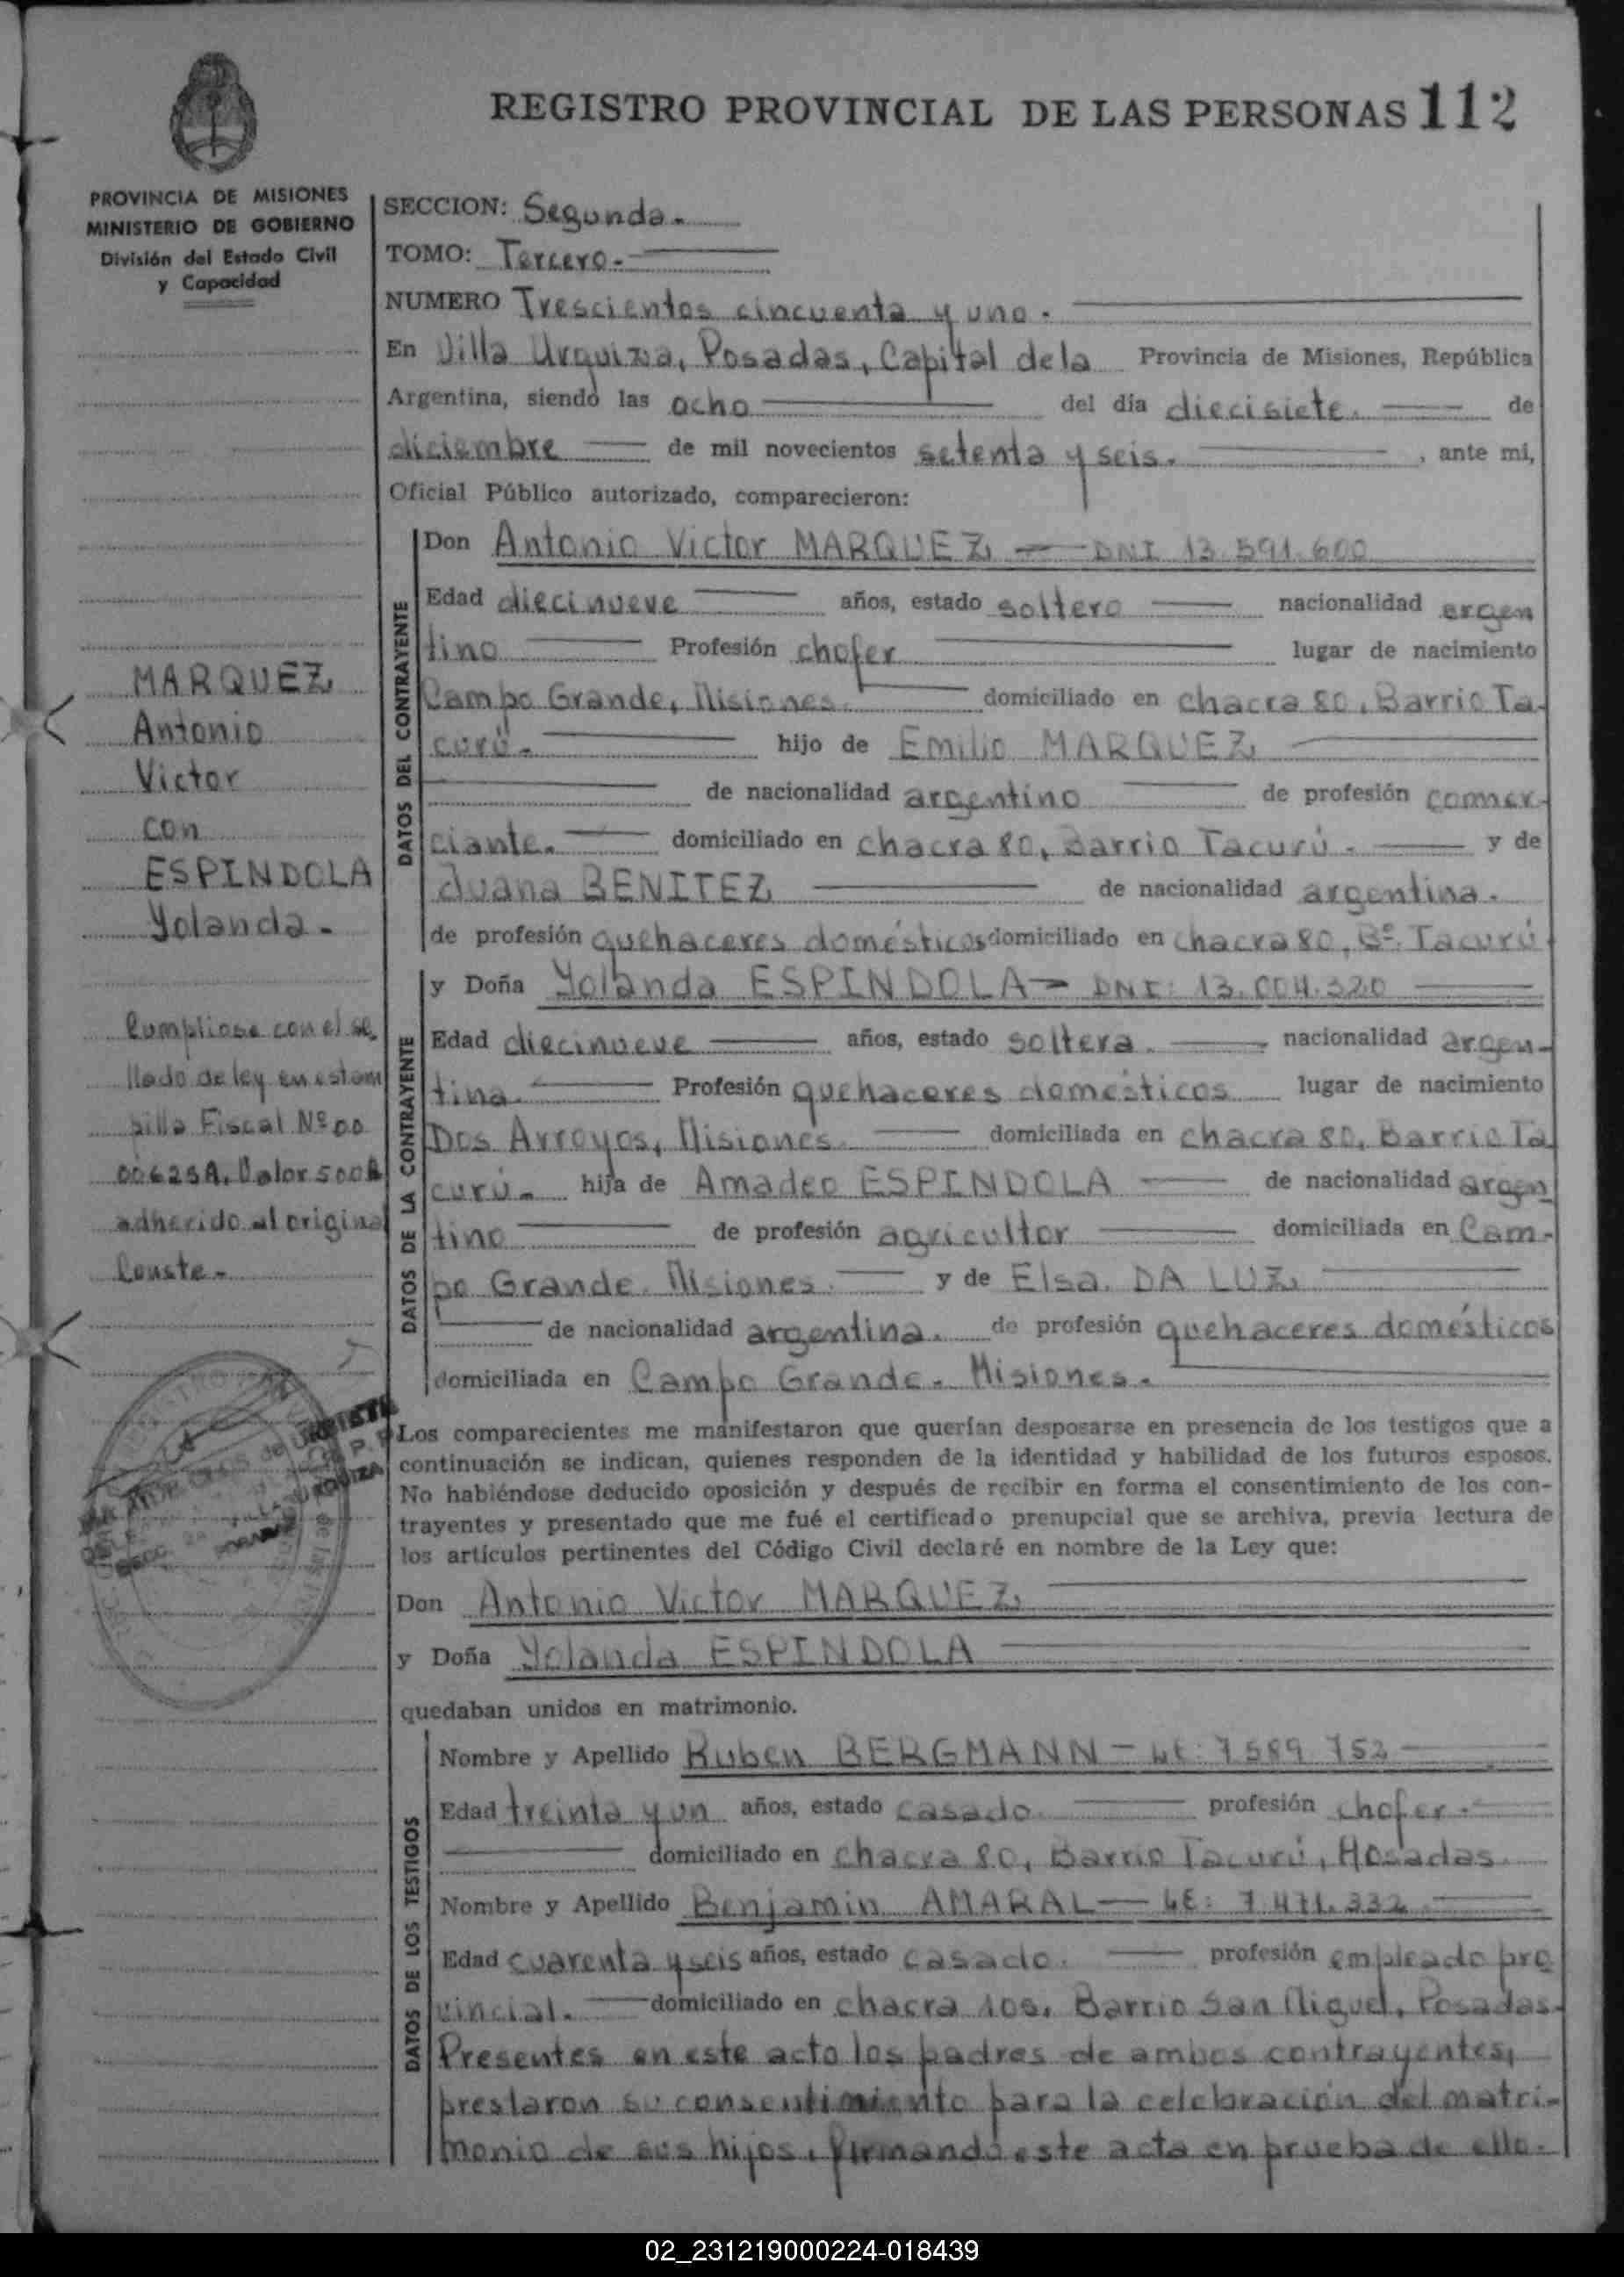 REGISTRO PROVINCIAL DE LAS PERSONAS 112
PROVINCIA DE MISIONES
MINISTERIO DE GOBIERNO
División del Estado Civil
y Capacidad
SECCION: Segunda.
TOMO: Tercero.
NUMERO Trescientos cincuenta y uno.
En Villa Urquiza, Posadas, Capital de la Provincia de Misiones, República
Argentina, siendo las ocho del día diecisiete. de
diciembre de mil novecientos setenta y seis. , ante mi,
Oficial Público autorizado, comparecieron:
DATOS DEL CONTRAYENTE
Don Antonio Victor MARQUEZ — DNI 13.591.600
Edad diecinueve años, estado soltero nacionalidad argen
tino Profesión chofer lugar de nacimiento
Campo Grande, Misiones. domiciliado en chacra 80, Barrio Ta-
curú. hijo de Emilio MARQUEZ
de nacionalidad argentino de profesión comer-
ciante. domiciliado en chacra 80, Barrio Tacurú. y de
Juana BENITEZ de nacionalidad argentina.
de profesión quehaceres domésticos domiciliado en chacra 80, Bº. Tacurú.
DATOS DE LA CONTRAYENTE
y Doña Yolanda ESPINDOLA — DNI: 13.004.320
Edad diecinueve años, estado soltera. nacionalidad argen-
tina. Profesión quehaceres domésticos lugar de nacimiento
Dos Arroyos, Misiones. domiciliada en chacra 80, Barrio Ta
curú. hija de Amadeo ESPINDOLA de nacionalidad argen
tino de profesión agricultor domiciliada en Cam-
po Grande. Misiones. y de Elsa DA LUZ
de nacionalidad argentina. de profesión quehaceres domésticos
domiciliada en Campo Grande. Misiones.
Los comparecientes me manifestaron que querían desposarse en presencia de los testigos que a
continuación se indican, quienes responden de la identidad y habilidad de los futuros esposos.
No habiéndose deducido oposición y después de recibir en forma el consentimiento de los con-
trayentes y presentado que me fué el certificado prenupcial que se archiva, previa lectura de
los artículos pertinentes del Código Civil declaré en nombre de la Ley que:
Don Antonio Victor MARQUEZ
y Doña Yolanda ESPINDOLA
quedaban unidos en matrimonio.
DATOS DE LOS TESTIGOS
Nombre y Apellido Ruben BERGMANN — LE: 7.589.752
Edad treinta y un años, estado casado. profesión chofer.
domiciliado en chacra 80, Barrio Tacurú, Posadas.
Nombre y Apellido Benjamin AMARAL — LE: 7.471.332
Edad cuarenta y seis años, estado casado. profesión empleado pro
vincial. domiciliado en chacra 105, Barrio San Miguel, Posadas.
Presentes en este acto los padres de ambos contrayentes,
prestaron su consentimiento para la celebración del matri-
monio de sus hijos, firmando este acta en prueba de ello.
MARQUEZ
Antonio
Victor
con
ESPINDOLA
Yolanda.
Cumpliose con el se
llado de ley en estam
pilla Fiscal Nº 00
00625A. Valor 500
adherido al original
Conste.
de URRIETA
URQUIZA
02_231219000224-018439